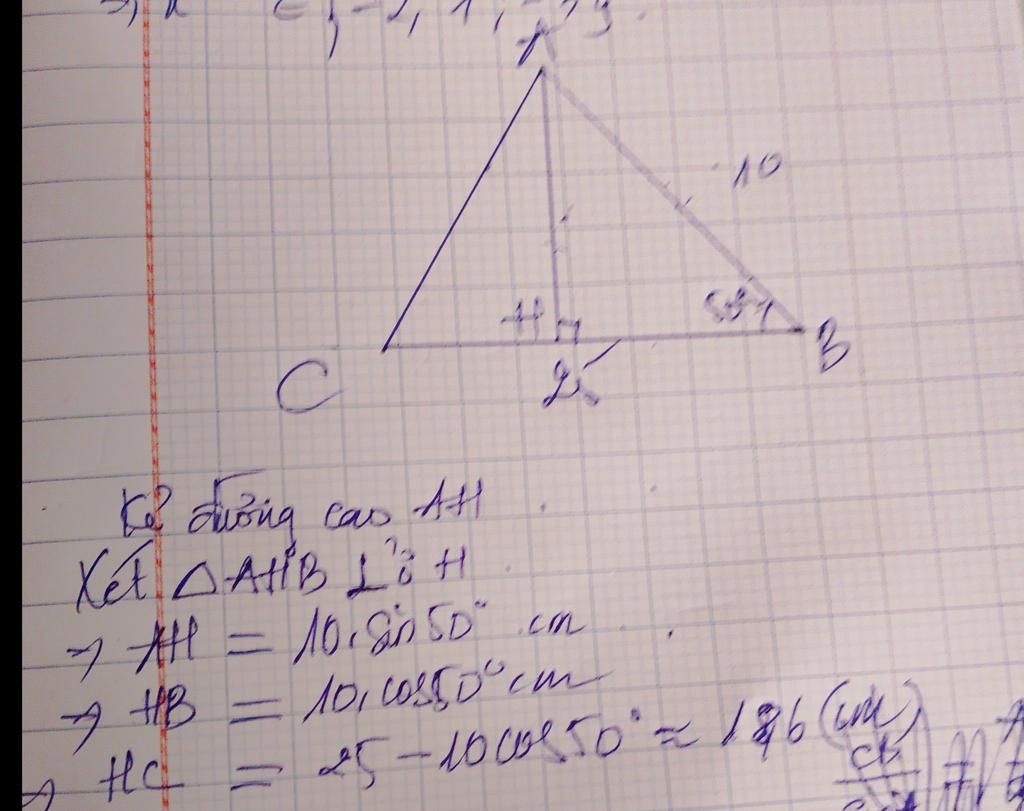 A
10
H
50°
B
C
25
Kẻ đường cao AH
Xét △AHB ⊥ ở H
→ AH = 10.sin50° cm
→ HB = 10.cos50° cm
→ HC = 25 - 10cos50° ≈ 18,6 (cm)